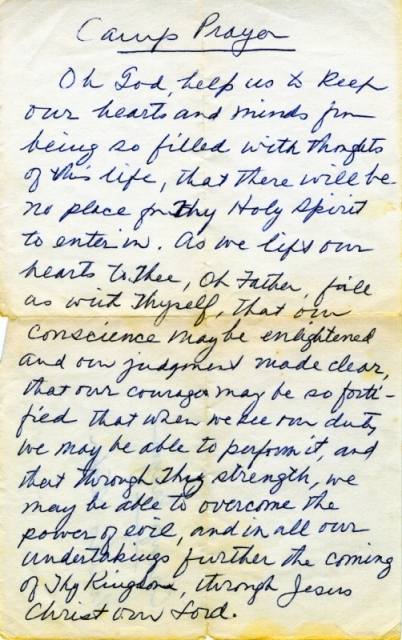 Camp Prayer
Oh God, help us to keep
our hearts and minds from
being so filled with thoughts
of this life, that there will be
no place for Thy Holy Spirit
to enter in. As we lift our
hearts to Thee, Oh Father, fill
us with Thyself, that our
conscience may be enlightened
and our judgment made clear,
that our courage may be so forti-
fied that when we see our duty,
we may be able to perform it, and
that through Thy strength, we
may be able to overcome the
power of evil, and in all our
undertakings further the coming
of Thy Kingdom, through Jesus
Christ our Lord.